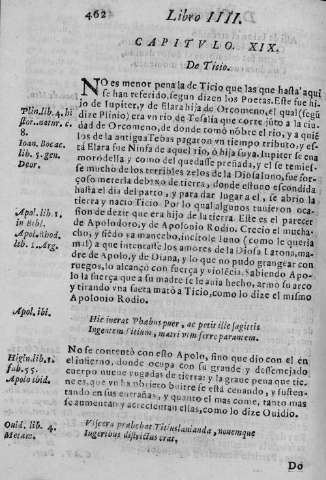 462 Libro IIII.
CAPITVLO. XIX.
De Ticio.
NO es menor pena la de Ticio que las que hasta aqui
se han referido, segun dizen los Poetas. Este fue hi-
jo de Iupiter, y de Elara hija de Orcomeno, el qual (segũ
dize Plinio) era vn rio de Tesalia que corre jũto a la ciu-
dad de Orcomeno, de donde tomò nõbre el rio, y a quiẽ
los de la antigua Tebas pagaron vn tiempo tributo, y es-
ta Elara fue Ninfa de aquel rio, ò hija suya. Iupiter se ena
morò della, y como del quedasse preñada, y el se temies-
se mucho de los terribles zelos de la Diosa Iuno, fue for-
çoso meterla debaxo de tierra, donde estuuo escondida
hasta el dia del parto, y para dar lugar a el, se abrio la
tierra y nacio Ticio. Por lo qual algunos tuuieron oca-
sion de dezir que era hijo de la tierra. Este es el parecer
de Apolodoro, y de Apolonio Rodio. Crecio el mucha-
cho, y siẽdo ya mancebo, incitole Iuno (como le queria
mal) a que intentasse los amores de la Diosa Latona, ma-
dre de Apolo, y de Diana, y lo que no pudo grangear con
ruegos, lo alcançò con fuerça y violẽcia. Sabiendo Apo-
lo la fuerça que a su madre se le auia hecho, armò su arco
y tirando vna saeta matò a Ticio, como lo dize el mismo
Apolonio Rodio.
Plin. lib. 4. hi
stor. natur. c.
8.
Ioan. Bocac.
lib. 5. gen.
Deor.
Apol. lib. 1.
in Bibl.
Apol. Rhod.
lib. 1. Arg.
Apol. ibi.
Hic inerat Phœbus puer, ac petit ille sagittis
Ingentem Titium, matri vim ferre parentem.
Higin. lib. 1.
fab. 55.
Apolo ibid.
No se contentò con esto Apolo, sino que dio con el en
el infierno, donde ocupa con su grande y dessemejado
cuerpo nueue yugadas de tierra; y la graue pena que tie-
ne es, que vn hãbriẽto buitre se està cenando, y susten-
tando en sus entrañas, y quanto el mas come, tanto mas
se aumentan y acrecientan ellas, como lo dize Ouidio.
Ouid. lib. 4.
Metam.
Viscera præbebat Titius lanianda, nouemque
Iugeribus distentus erat,
Do